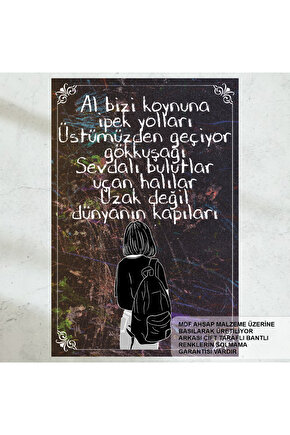 Al bizi koynuna
ipek yolları
Üstümüzden geçiyor
gökkuşağı
Sevdalı bulutlar
uçan halılar
Uzak değil
dünyanın kapıları
MDF AHŞAP MALZEME ÜZERİNE
BASILARAK ÜRETİLİYOR
ARKASI ÇİFT TARAFLI BANTLI
RENKLERİN SOLMAMA
GARANTİSİ VARDIR